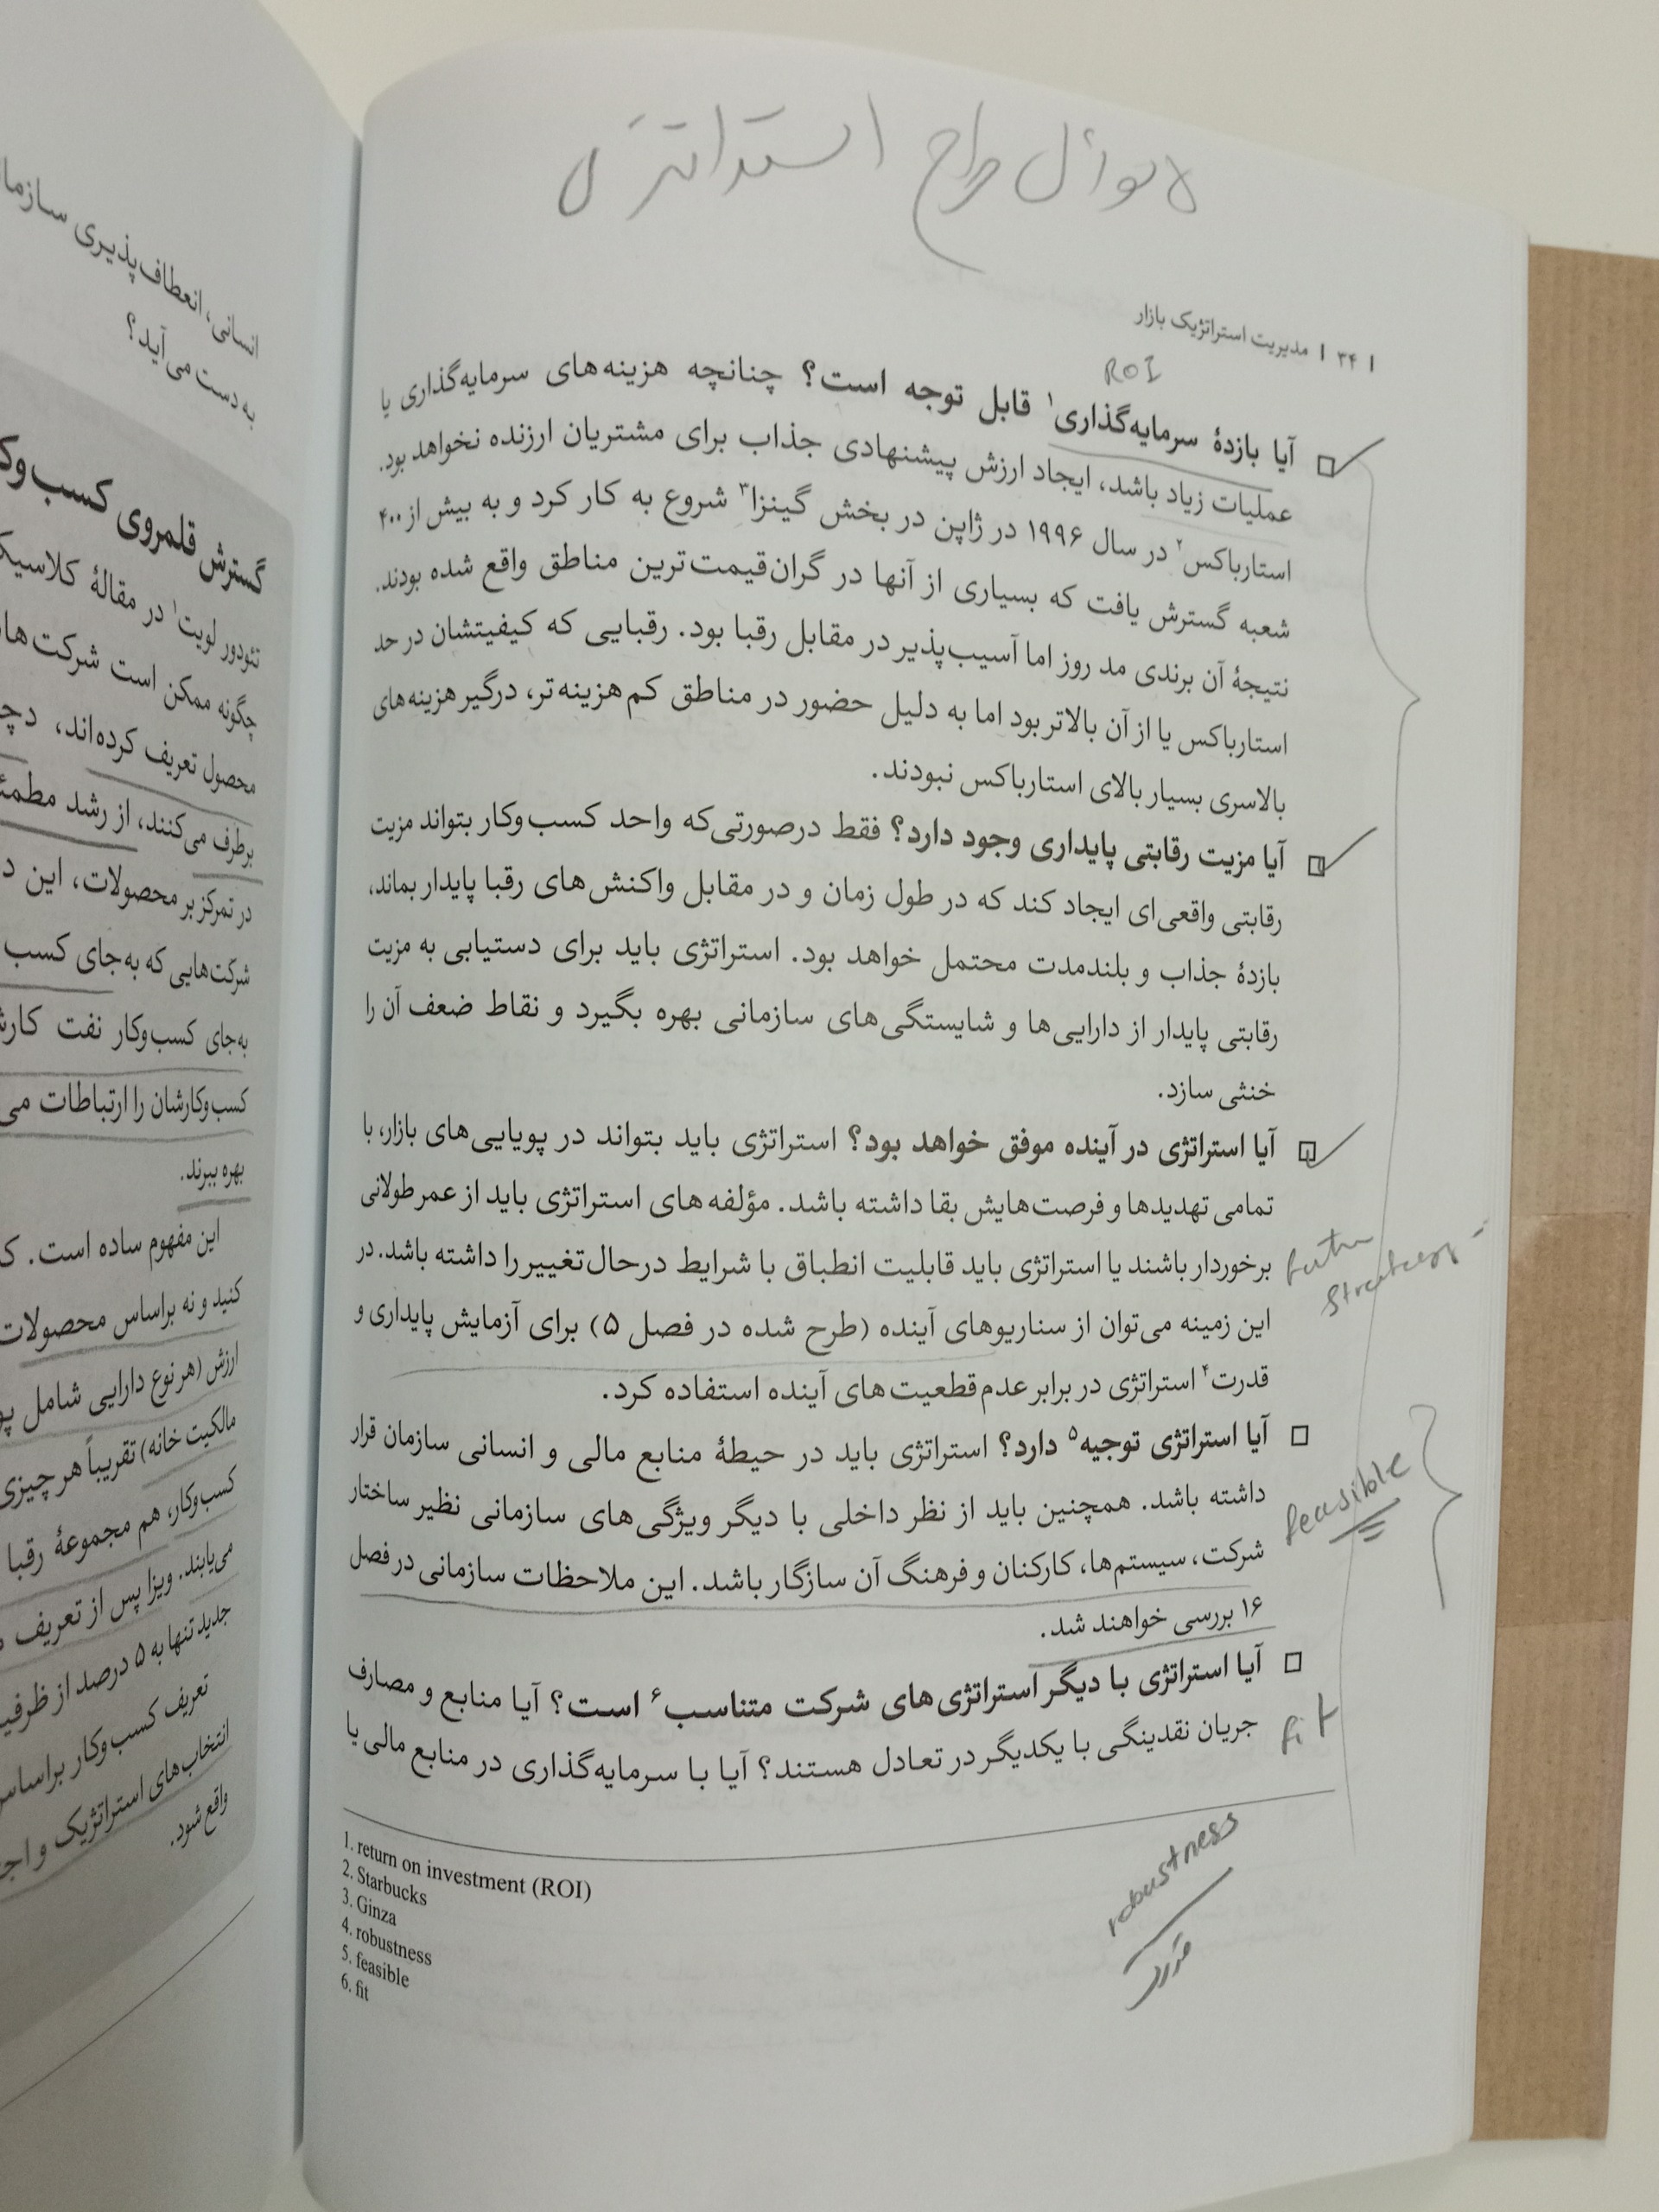 ۵ سوال طراحی استراتژی
| ۳۴ | مدیریت استراتژیک بازار
ROI
□ آیا بازدهٔ سرمایه‌گذاری۱ قابل توجه است؟ چنانچه هزینه‌های سرمایه‌گذاری یا
عملیات زیاد باشد، ایجاد ارزش پیشنهادی جذاب برای مشتریان ارزنده نخواهد بود.
استارباکس۲ در سال ۱۹۹۶ در ژاپن در بخش گینزا۳ شروع به کار کرد و به بیش از ۴۰۰
شعبه گسترش یافت که بسیاری از آنها در گران‌قیمت‌ترین مناطق واقع شده بودند.
نتیجهٔ آن برندی مد روز اما آسیب‌پذیر در مقابل رقبا بود. رقبایی که کیفیتشان در حد
استارباکس یا از آن بالاتر بود اما به دلیل حضور در مناطق کم‌هزینه‌تر، درگیر هزینه‌های
بالاسری بسیار بالای استارباکس نبودند.
□ آیا مزیت رقابتی پایداری وجود دارد؟ فقط درصورتی‌که واحد کسب‌وکار بتواند مزیت
رقابتی واقعی‌ای ایجاد کند که در طول زمان و در مقابل واکنش‌های رقبا پایدار بماند،
بازدهٔ جذاب و بلندمدت محتمل خواهد بود. استراتژی باید برای دستیابی به مزیت
رقابتی پایدار از دارایی‌ها و شایستگی‌های سازمانی بهره بگیرد و نقاط ضعف آن را
خنثی سازد.
□ آیا استراتژی در آینده موفق خواهد بود؟ استراتژی باید بتواند در پویایی‌های بازار، با
تمامی تهدیدها و فرصت‌هایش بقا داشته باشد. مؤلفه‌های استراتژی باید از عمر طولانی
برخوردار باشند یا استراتژی باید قابلیت انطباق با شرایط درحال‌تغییر را داشته باشد. در
این زمینه می‌توان از سناریوهای آینده (طرح شده در فصل ۵) برای آزمایش پایداری و
قدرت۴ استراتژی در برابر عدم‌قطعیت‌های آینده استفاده کرد.
□ آیا استراتژی توجیه۵ دارد؟ استراتژی باید در حیطهٔ منابع مالی و انسانی سازمان قرار
داشته باشد. همچنین باید از نظر داخلی با دیگر ویژگی‌های سازمانی نظیر ساختار
شرکت، سیستم‌ها، کارکنان و فرهنگ آن سازگار باشد. این ملاحظات سازمانی در فصل
۱۶ بررسی خواهند شد.
feasible
□ آیا استراتژی با دیگر استراتژی‌های شرکت متناسب۶ است؟ آیا منابع و مصارف
جریان نقدینگی با یکدیگر در تعادل هستند؟ آیا با سرمایه‌گذاری در منابع مالی یا
fit
robustness
قدرت
1. return on investment (ROI)
2. Starbucks
3. Ginza
4. robustness
5. feasible
6. fit
انسانی، انعطاف‌پذیری
به دست می‌آید؟
گسترش قلمروی
تئودور لویت۱ در مقالهٔ
چگونه ممکن است
محصول تعریف کرده‌اند،
برطرف می‌کنند، از رشد
در تمرکز بر محصولات، این
شرکت‌هایی که به‌جای کسب
به‌جای کسب‌وکار نفت
کسب‌وکارشان را ارتباطات
بهره ببرند.
این مفهوم ساده است.
کنید و نه براساس محصولات
ارزش (هر نوع دارایی شامل
مالکیت خانه) تقریباً هر چیزی
کسب‌وکار، هم مجموعهٔ رقبا
می‌یابند. ویزا پس از تعریف
جدید تنها به ۵ درصد از
تعریف کسب‌وکار براساس
انتخاب‌های استراتژیک و
واقع شود.